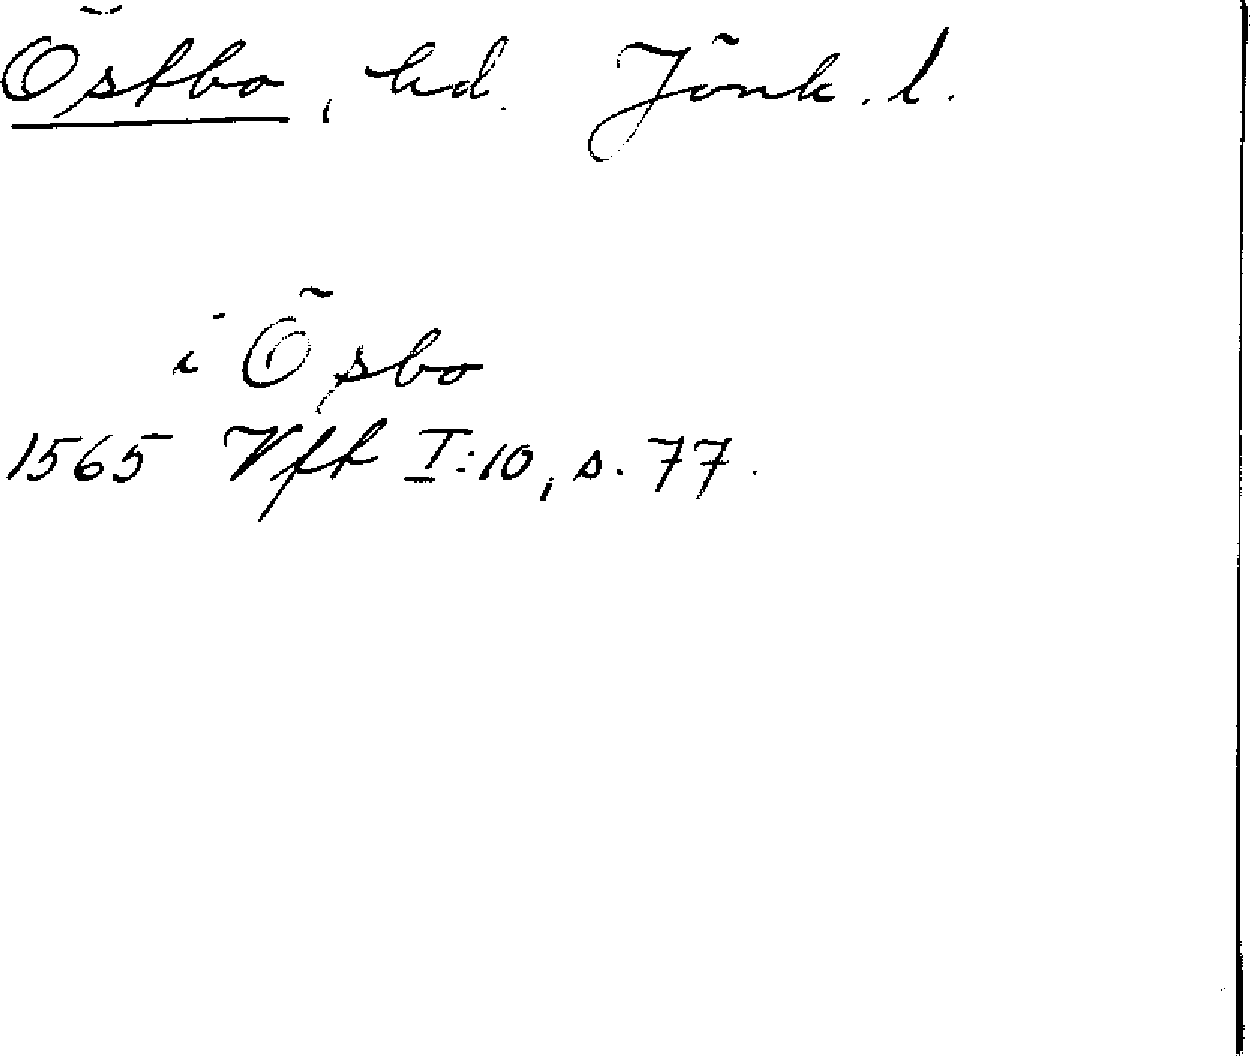 Östbo, hd. Jönk. l.
i Ösbo
1565 Vfk I:10, s. 77.